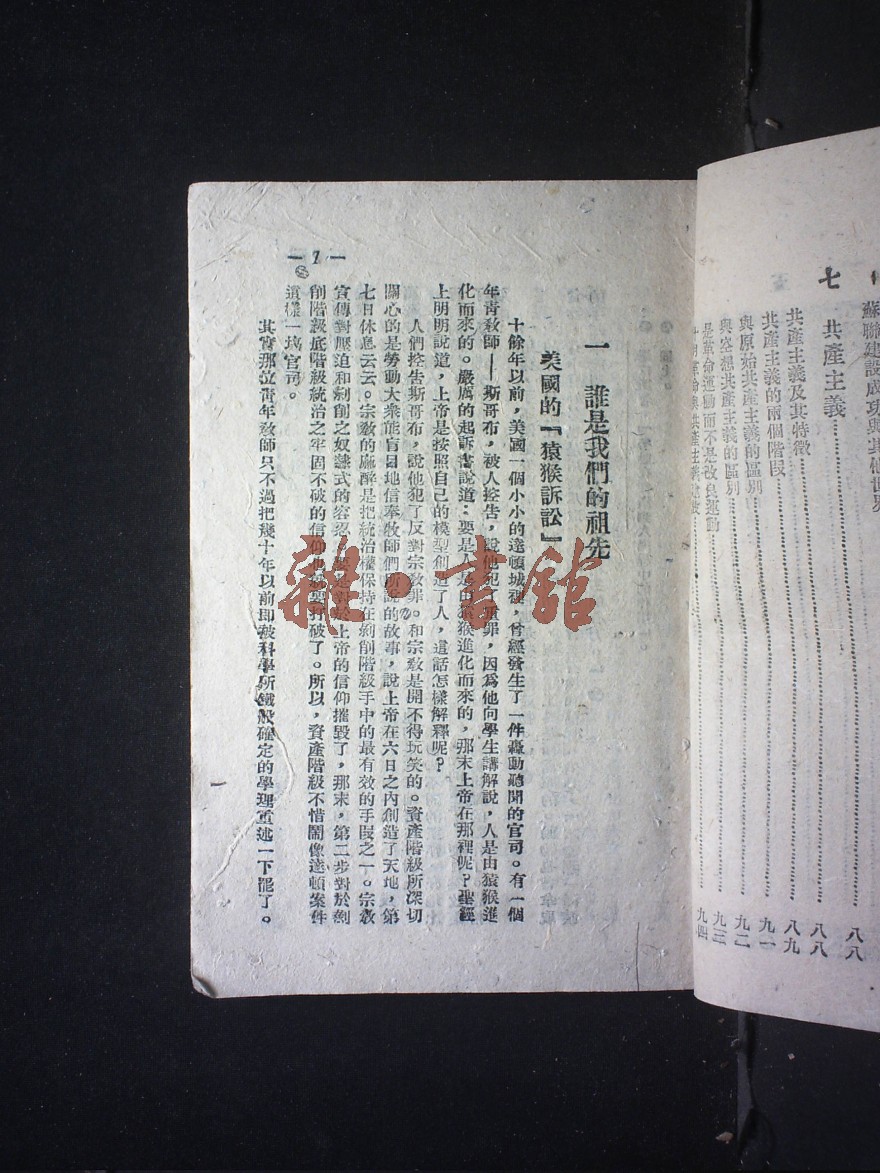 蘇聯建設成功與其他世界……八八
七 共產主義……八八
共產主義及其特徵……八九
共產主義的兩個階段……九一
與原始共產主義的區別……九二
與空想共產主義的區別……九三
是革命運動而不是改良運動……九四
一 誰是我們的祖先
美國的『猿猴訴訟』
十餘年以前，美國一個小小的達頓城裡，曾經發生了一件轟動聽聞的官司。有一個
年青敎師——斯哥布，被人控告，說他犯了重罪，因爲他向學生講解說，人是由猿猴進
化而來的。嚴厲的起訴書說道：要是人是由猿猴進化而來的，那末上帝在那裡呢？聖經
上明明說道，上帝是按照自己的模型創造了人，這話怎樣解釋呢？
人們控告斯哥布，說他犯了反對宗敎罪。和宗敎是開不得玩笑的。資產階級所深切
關心的是勞動大衆能盲目地信奉敎師們所說的故事，說上帝在六日之內創造了天地，第
七日休息云云。宗敎的麻醉是把統治權保持在剝削階級手中的最有效的手段之一。宗敎
宣傳對壓迫和剝削之奴隸式的容忍 對於上帝的信仰摧毀了，那末，第二步對於剝
削階級底階級統治之牢固不破的信仰 要打破了。所以，資產階級不惜鬧像達頓案件
這樣一塲官司。
其實那位靑年敎師只不過把幾十年以前卽被科學所鐵般確定的學理重述一下罷了。
— 1 —
雜·書館